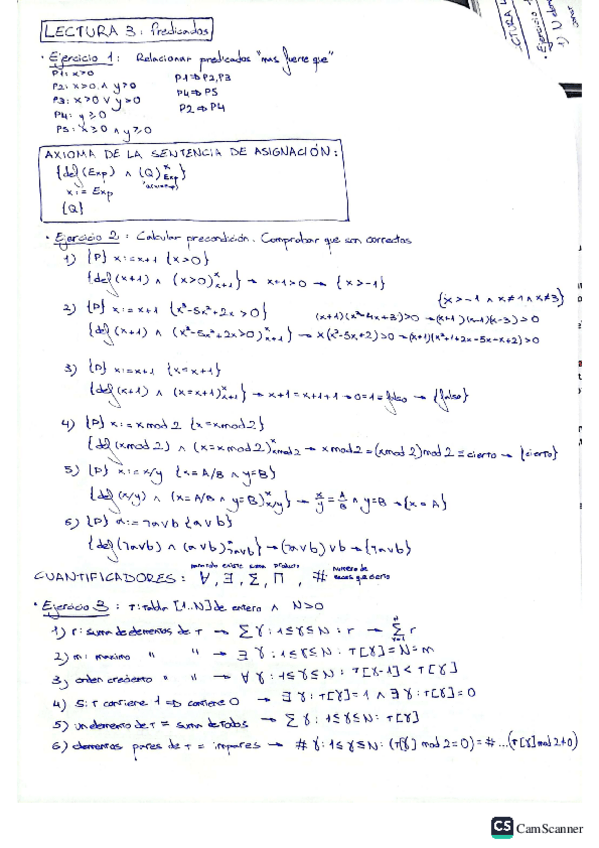 LECTURA 3: Predicados
· Ejercicio 1: Relacionar predicados "mas fuerte que"
P1: x>0
P2: x>0 ∧ y>0
P3: x>0 ∨ y>0
P4: y≥0
P5: x≥0 ∧ y≥0
P1⇒P2,P3
P4⇒P5
P2⇒P4
AXIOMA DE LA SENTENCIA DE ASIGNACIÓN:
{def(Exp) ∧ (Q)ˣExp}
x:= Exp
{Q}
· Ejercicio 2: Calcular precondición. Comprobar que son correctos
1) {P} x:=x+1 {x>0}
{def(x+1) ∧ (x>0)ˣx+1} → x+1>0 → {x>-1}
{x>-1 ∧ x≠1 ∧ x≠3}
2) {P} x:=x+1 {x³-5x²+2x>0} (x+1)(x²-4x+3)>0 → (x+1)(x-1)(x-3)>0
{def(x+1) ∧ (x³-5x²+2x>0)ˣx+1} → x(x²-5x+2)>0 → (x+1)(x²+1+2x-5x-x+2)>0
3) {P} x:=x+1 {x=x+1}
{def(x+1) ∧ (x=x+1)ˣx+1} → x+1=x+1+1 → 0=1=falso → {falso}
4) {P} x:=x mod 2 {x=x mod 2}
{def(x mod 2) ∧ (x=x mod 2)ˣx mod 2 → x mod 2=(x mod 2) mod 2 = cierto → {cierto}
5) {P} x:=x/y {x=A/B ∧ y=B}
{def(x/y) ∧ (x=A/B ∧ y=B)ˣx/y} → x/y = A/B ∧ y=B → {x=A}
6) {P} a:=¬a∨b {a∨b}
{def(¬a∨b) ∧ (a∨b)ᵃ¬a∨b} → (¬a∨b)∨b → {¬a∨b}
existe suma producto numero de
CUANTIFICADORES: ∀, ∃, Σ, Π, # veces que cierto
· Ejercicio 3: T: Tabla [1..N] de entero ∧ N>0
1) r: suma de elementos de T → Σ γ: 1≤γ≤N: r → Σ r
2) m: maximo " " → ∃ γ: 1≤γ≤N: T[γ]=N=m
3) orden creciente " " → ∀ γ: 1≤γ≤N: T[γ-1] < T[γ]
4) S: T contiene 1 ⇒ contiene 0 → ∃ γ: T[γ]=1 ∧ ∃ γ: T[γ]=0
5) un elemento de T = suma de todos → Σ γ: 1≤γ≤N: T[γ]
6) elementos pares de T = impares → # γ: 1≤γ≤N: (T[γ] mod 2=0) = # ...(T[γ] mod 2≠0)
CS CamScanner